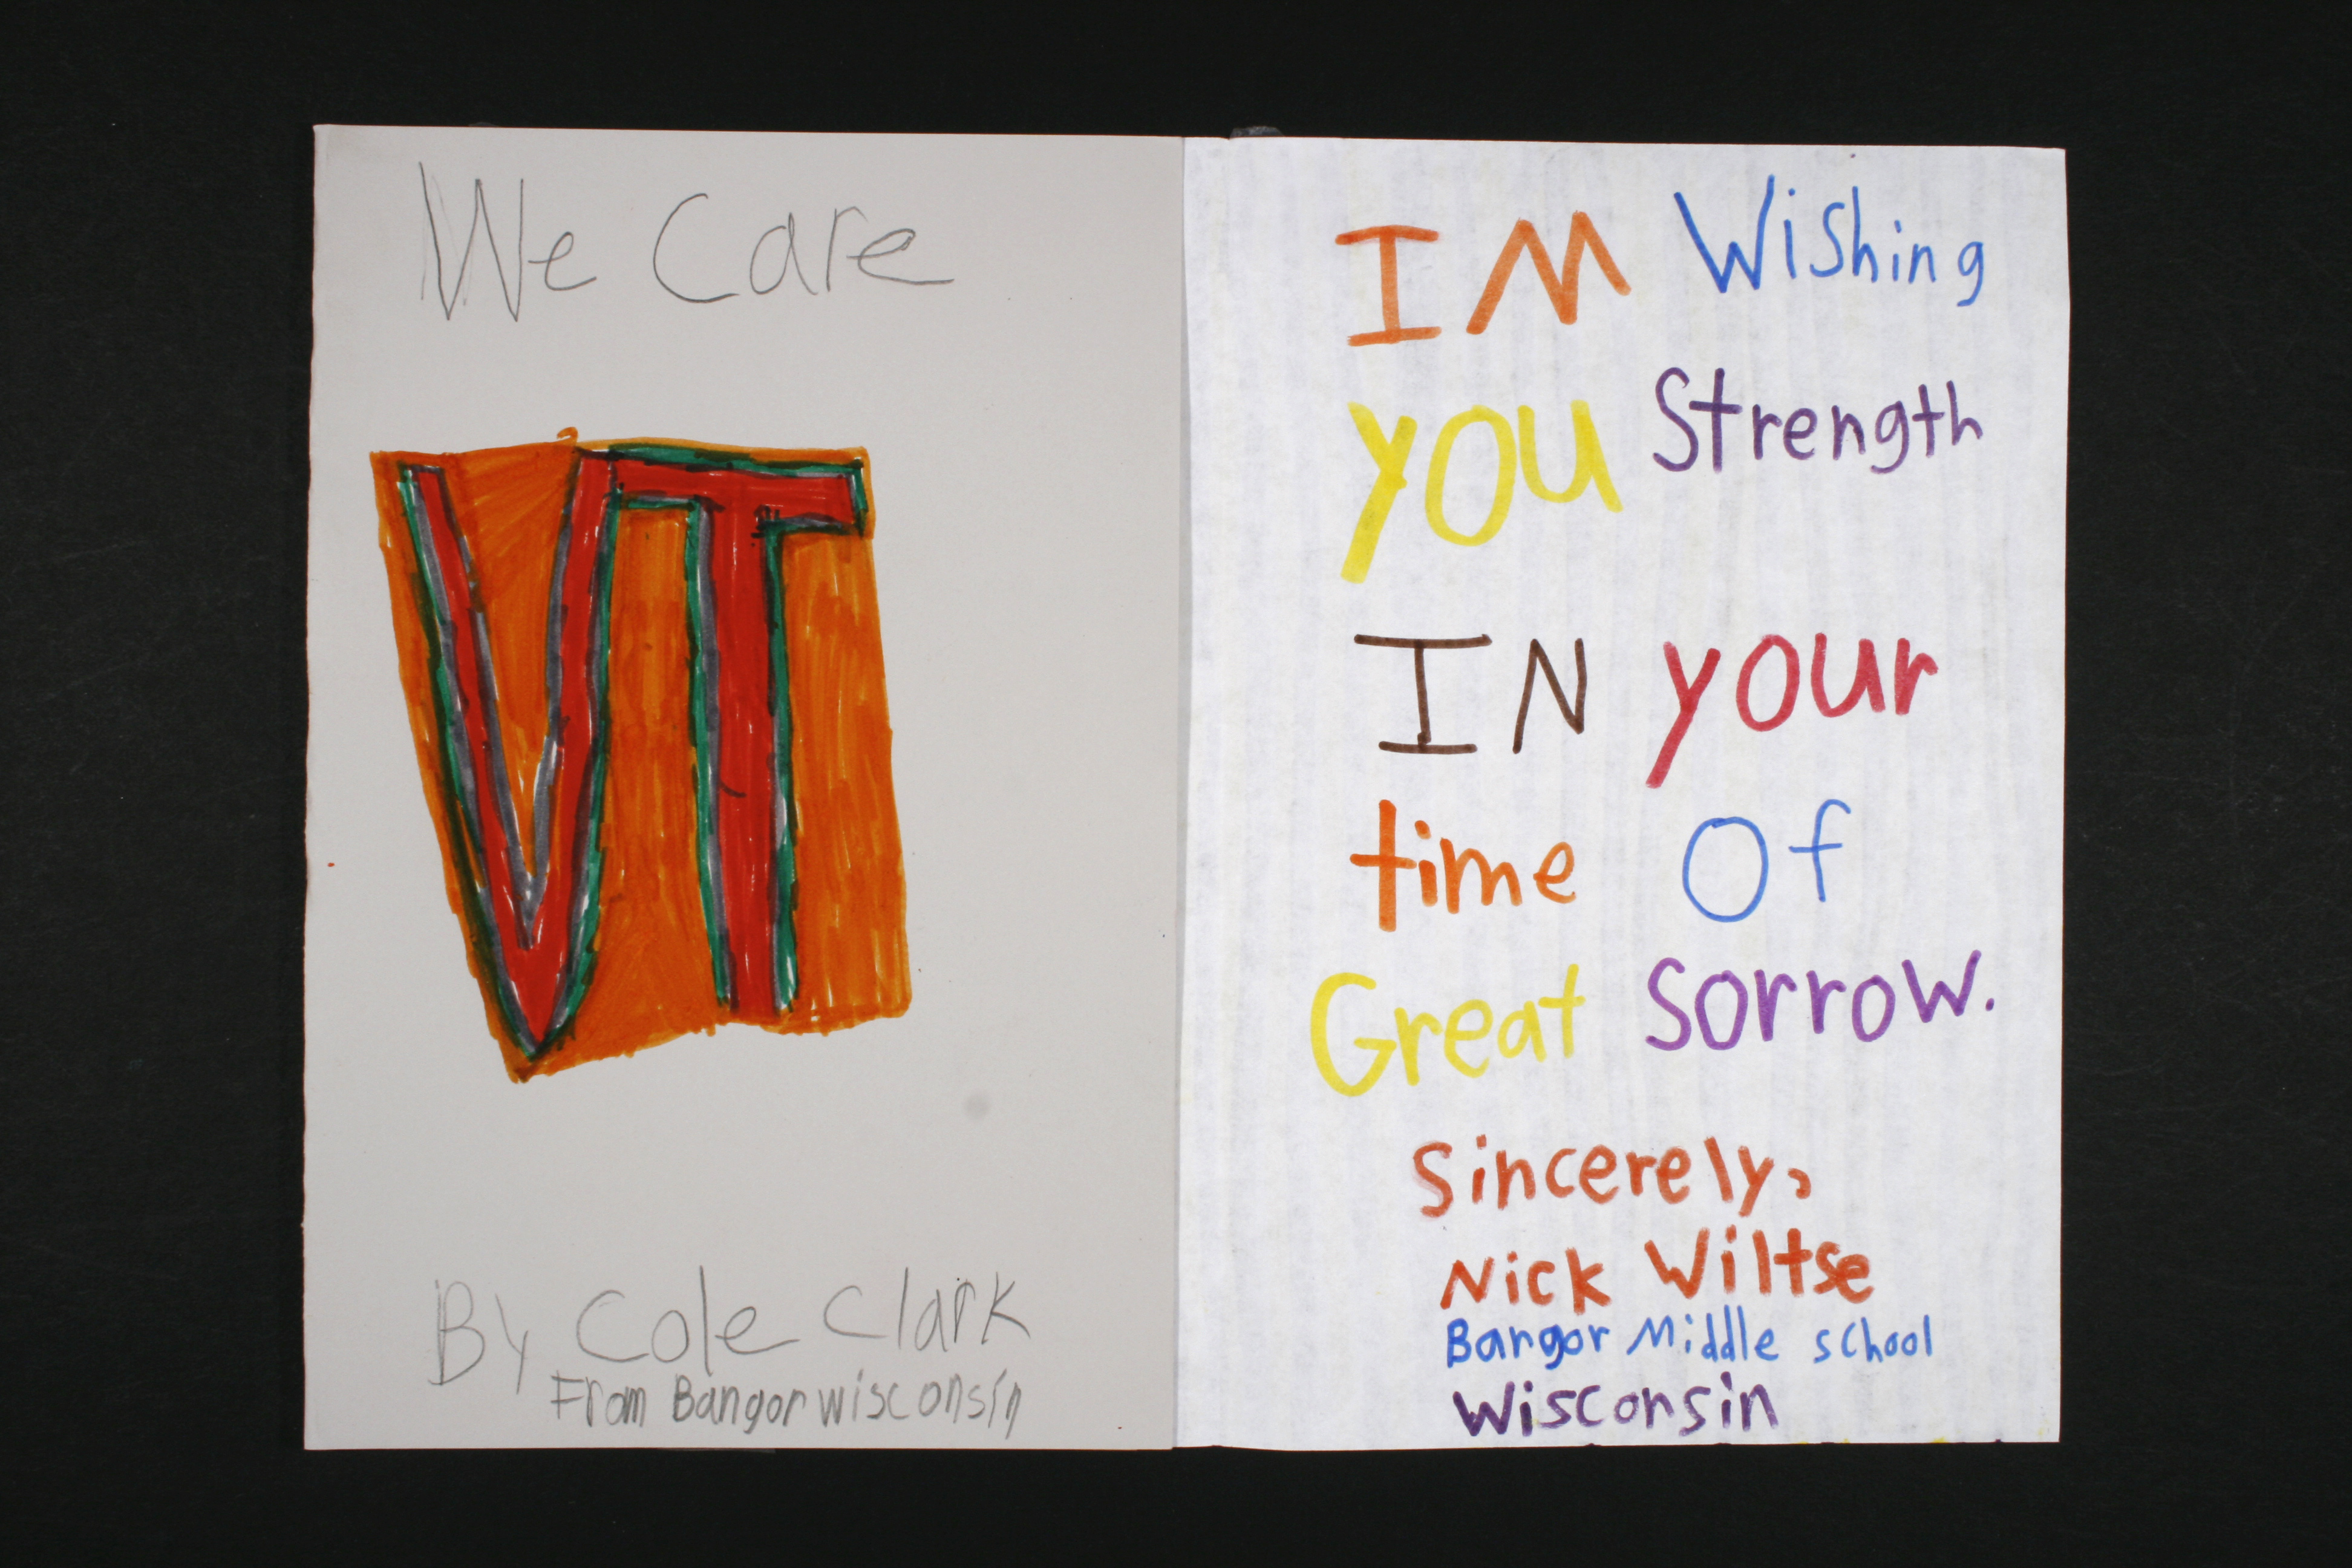 We Care
VT
By Cole Clark
From Bangor wisconsin
IM Wishing
you Strength
IN your
time Of
Great Sorrow.
Sincerely,
Nick Wiltse
Bangor Middle school
Wisconsin